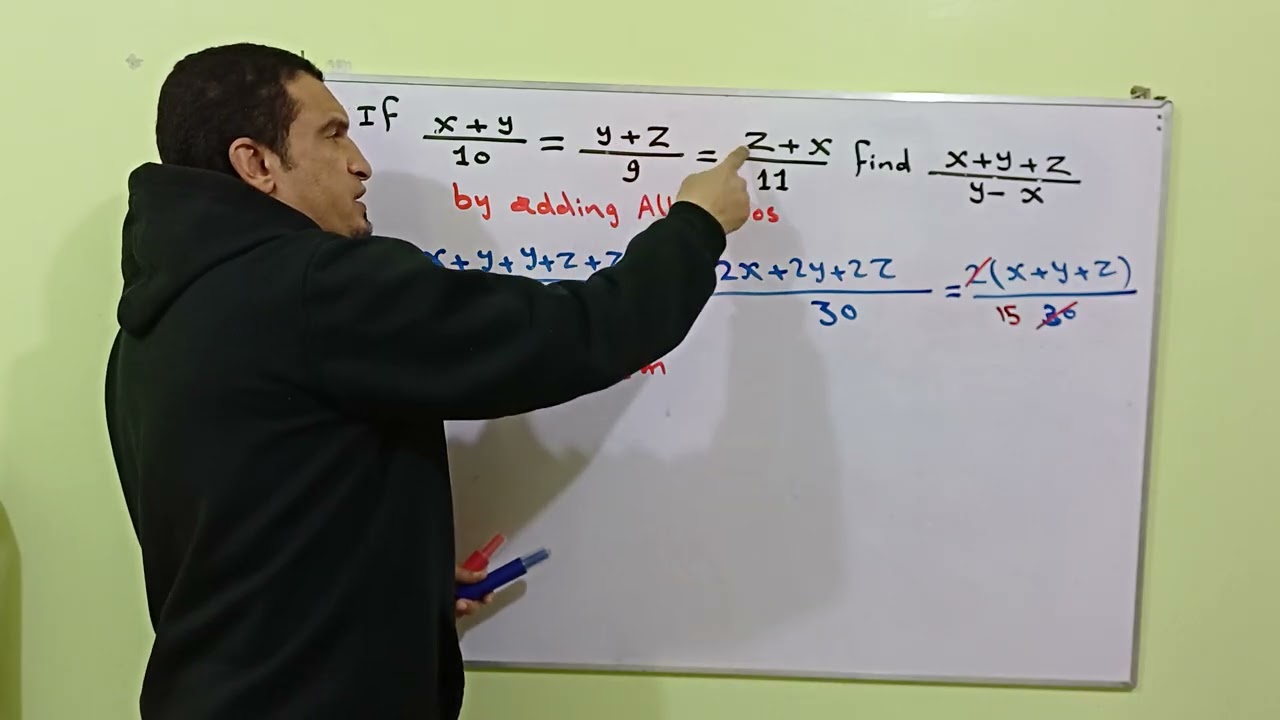 If x+y/10 = y+z/9 = z+x/11 find x+y+z/y-x
by adding
x+y+y+z+z 2x+2y+2z/30 = 2(x+y+z)/15 30